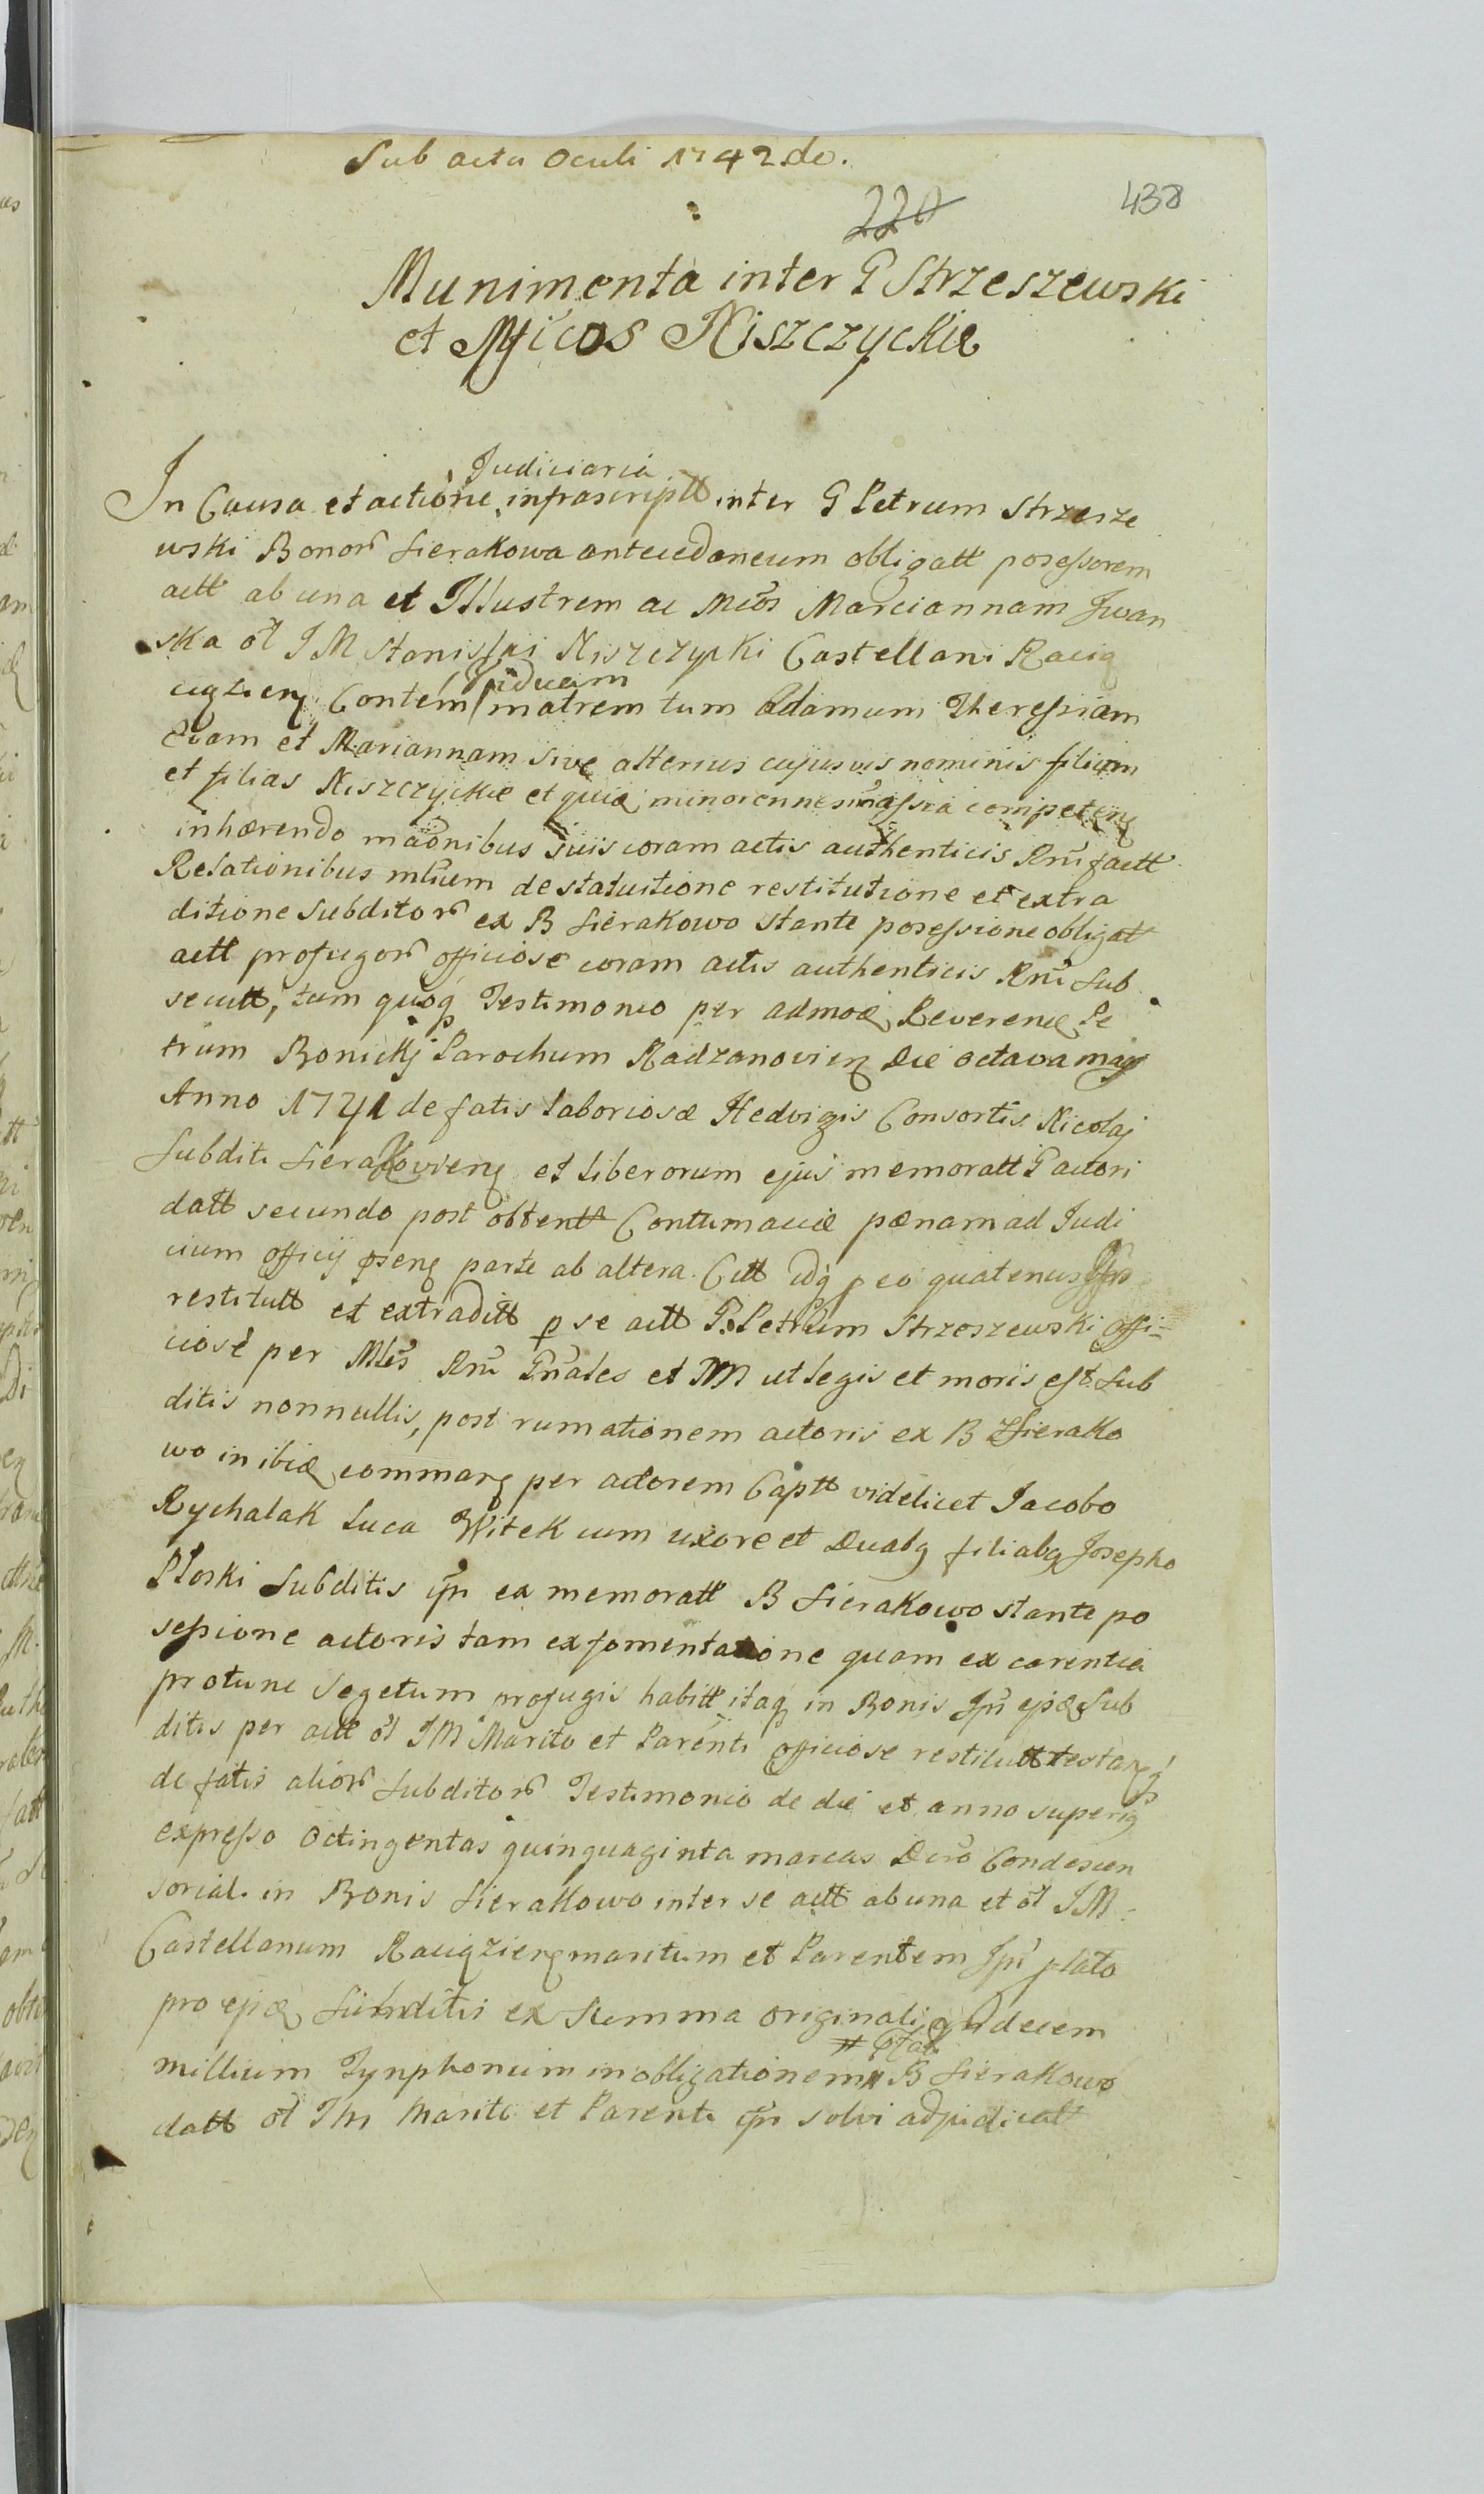 Sub actu Oculi 1742do.
220
438
Munimenta inter G Strzeszewski
et Mficos Niszczyckie
Judiciaria
In Causa et actione infrascriptt inter G Petrum Strzesze
wski Bonor Sierakowa antecedaneum obligatt posessorem
actt ab una et Illustrem ac Mcos Marciannam Iwan
ska ol IM Stanislai Niszczycki Castellani Racią
Viduam
ciązieng Contem matrem tum Adamum Theressiam
Evam et Mariannam sive alterius cujusvis nominis filium
et filias Niszczyckie et quia minorennes competeng
inhærendo maonibus suis coram actis authenticis Rni factt
Relationibus mlium de statuitione restitutione et extra
ditione Subditor ex B Sierakowo stante posessione obligatt
actt profugor officiose coram actis authenticis Rni Sub
secutt, tum quoq Testimonio per admod Reverend Pe
trum Bonicki Parochum Radzanovieng Die octava maij
Anno 1741 de fatis laboriosæ Hedvigis Consortis Nicolaj
Subditi Sierakovieng et liberorum ejus memoratt G actori
datt secundo post obtentt Contumaciæ pænam ad Judi
cium officij pseng parte ab altera Citt idq p eo quatenus Ipsis
restitutt et extraditt p se actt G. Petrum Strzeszewski offi=
ciose per Mles Rni Gnales et MM ut legis et moris est Sub
ditis nonnullis, post rumationem actoris ex B Sierako
wo in ibid commang per actorem Captt videlicet Jacobo
Rychalak Luca Witek cum uxore et Duabg filiabg Josepho
Ploski Subditis ipsi ex memoratt B Sierakowo stante po
sessione actoris tam ex fomentatione quam ex carentia
protunc Segetum profugis habitt itaq in Bonis Ipsi ejsd Sub
ditis per actt ol IM Marito et Parenti officiose restitutt testanq
de fatis alior Subditor Testimonio de die et anno superig
expresso Octingentas quinquaginta marcas Dcro Condescen
soriali in Bonis Sierakowo inter se actt ab una et ol IM
Castellanum Raciązieng maritum et Parentem Ipsi plato
pro ejsd Subditis ex Summa originali decem
# pfat
millium Tynphonum in obligationem # B Sierakowo
datt ol IM Marito et Parenti ipsi solvi adjudicatt